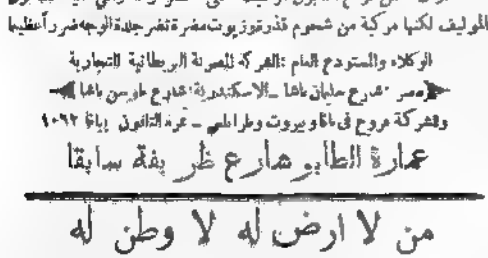 الموليف لكنها مركبة من شحوم قذرة وزيوت مضرة تضر جلدة الوجه ضررا عظيما
الوكلاء والمستودع العام : الشركة المصرية البريطانية التجارية
مصر شارع سليمان باشا ـ الاسكندرية شارع طوسن باشا
وللشركة فروع في يافا وبيروت وطرابلس ـ
عمارة الطابو شارع ظريفة سابقا
من لا ارض له لا وطن له